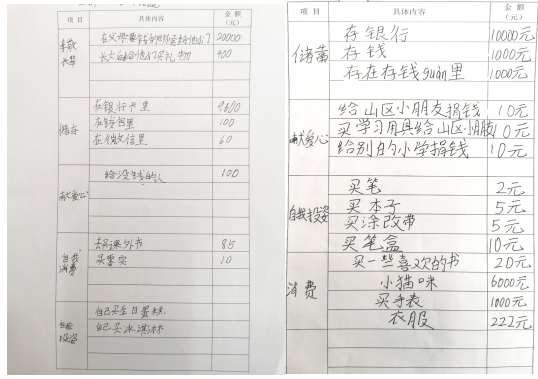 项目 具体内容 金额(元)
孝敬长辈
在父母 20000
长大后给他们买礼物 400
储存
在银行卡里 9600
在钱包里 100
在微信里 60
献爱心
给没钱的人 100
自我消费
去别课外书 85
买零食 10
自我投资
自己买生日蛋糕
自己买冰淇淋
项目 具体内容 金额(元)
储蓄
存银行 10000元
存钱 1000元
存在存钱guàn里 1000元
献爱心
给山区小朋友捐钱 10元
买学习用具给山区小朋友 10元
给别的小学捐钱 10元
自我投资
买笔 2元
买本子 5元
买涂改带 5元
买笔盒 10元
消费
买一些喜欢的书 20元
小猫咪 6000元
买手表 1000元
衣服 222元